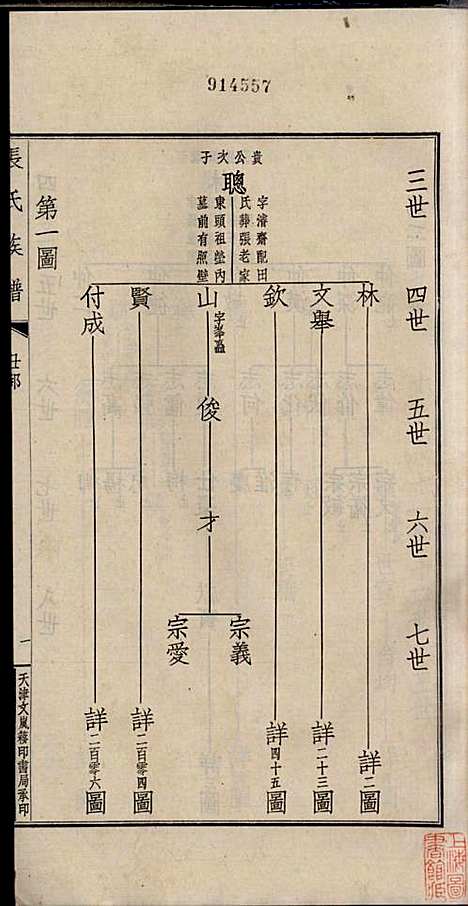 914557
三世
四世
五世
六世
七世
貴公次子
聰
字濟齋配田
氏葬張老家
東頭祖塋內
墓前有照壁
林
詳二圖
文舉
詳二十三圖
欽
詳四十五圖
山
俊
才
宗義
宗愛
賢
詳二百零四圖
付成
詳二百零六圖
第一圖
長氏族譜
一
天津文嵐簃印書局承印
上海圖
書館藏